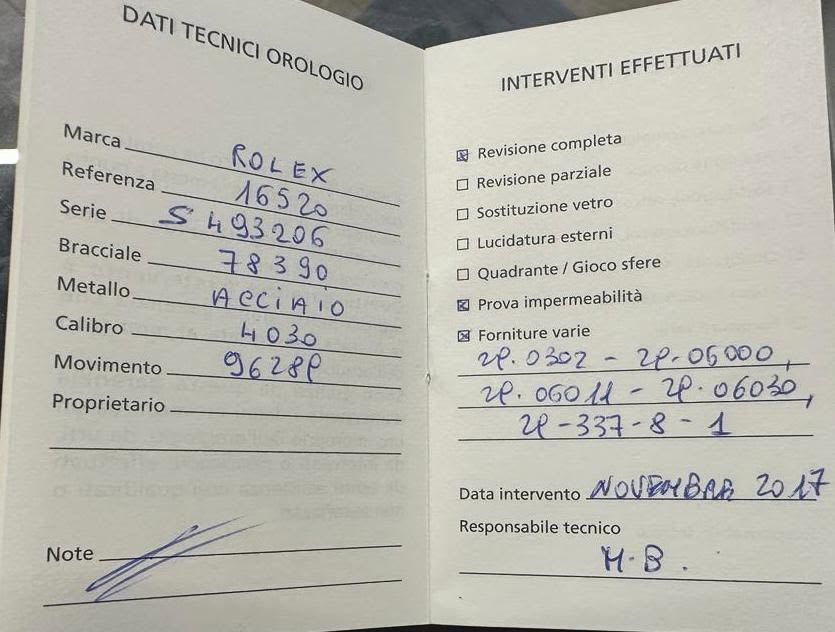 DATI TECNICI OROLOGIO
Marca ROLEX
Referenza 16520
Serie S 493206
Bracciale 78390
Metallo ACCIAIO
Calibro 4030
Movimento
Proprietario
Note
INTERVENTI EFFETTUATI
Revisione completa
Revisione parziale
Sostituzione vetro
Lucidatura esterni
Quadrante / Gioco sfere
Prova impermeabilità
Forniture varie
Data intervento NOVEMBRE 2017
Responsabile tecnico
M.B.